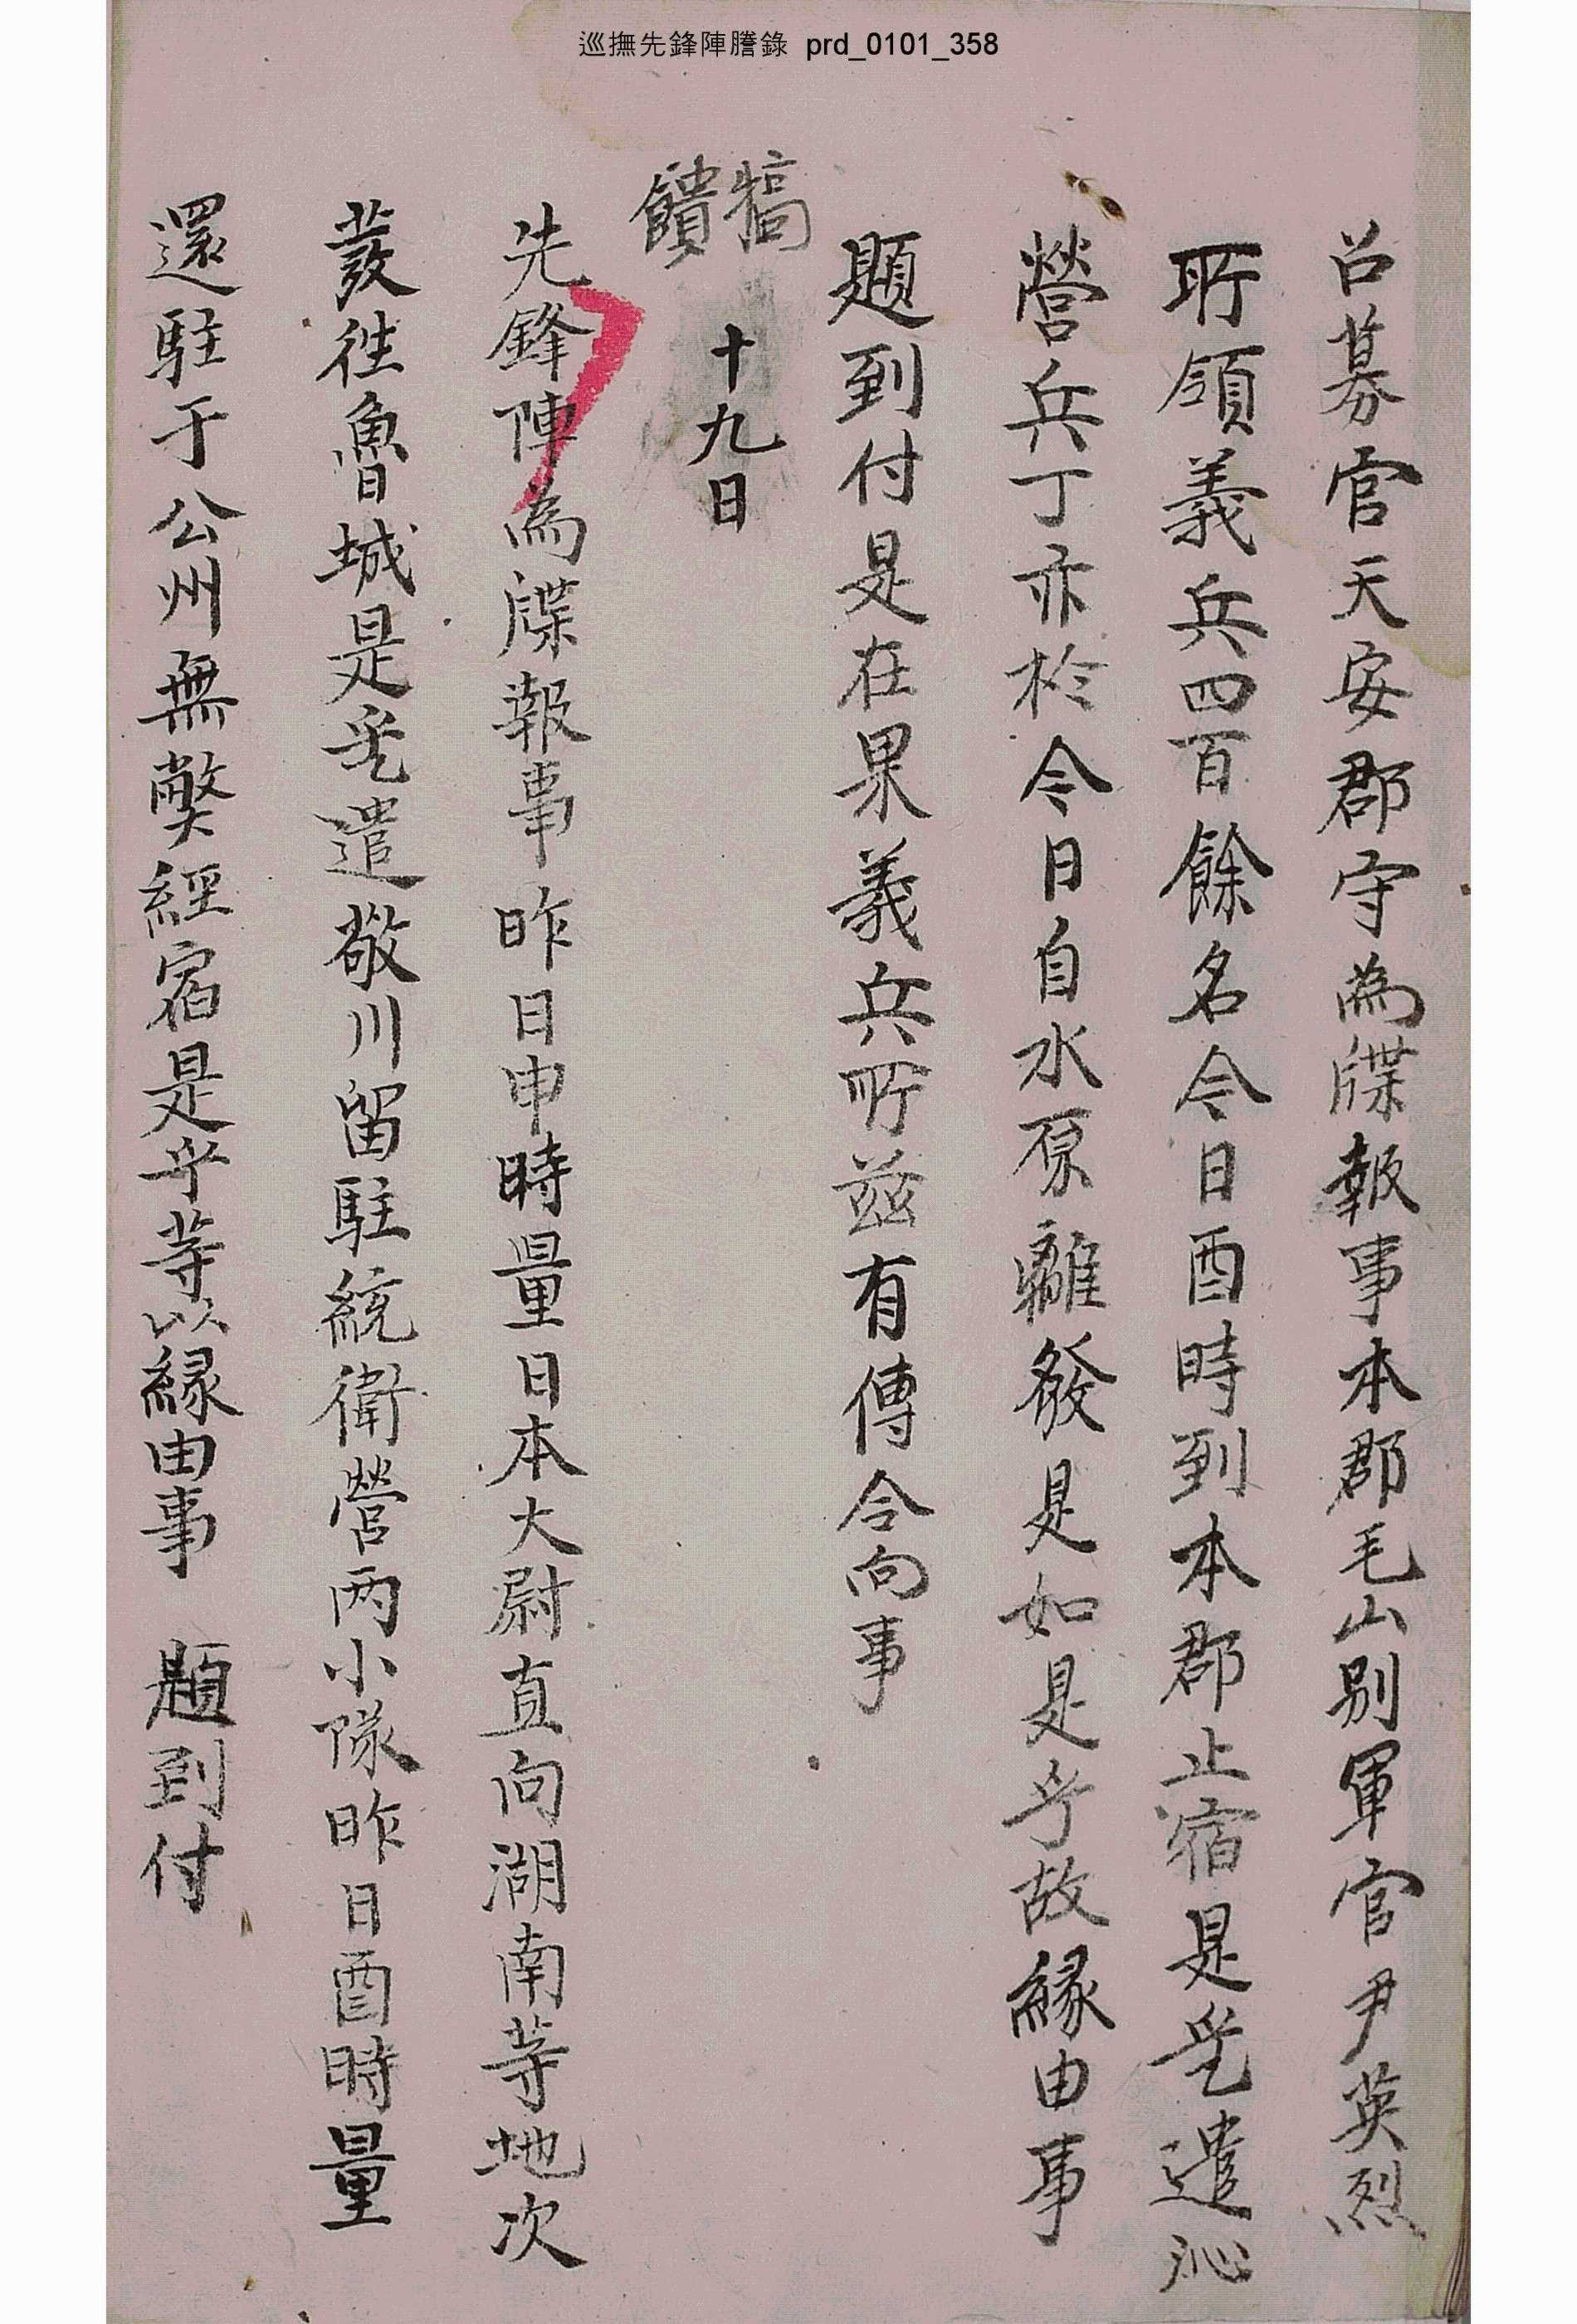 巡撫先鋒陣謄錄 prd_0101_358
召募官天安郡守為牒報事本郡毛山別軍官尹英烈
所領義兵四百餘名今日酉時到本郡止宿是乎遣沁
營兵丁亦於今日自水原離發是如是乎故緣由事
題到付是在果義兵所茲有傳令向事
犒饋
十九日
先鋒陣為牒報事昨日申時量日本大尉直向湖南等地次
發徃魯城是乎遣敬川留駐統衛營两小隊昨日酉時量
還駐于公州無弊經宿是乎等以緣由事 題到付